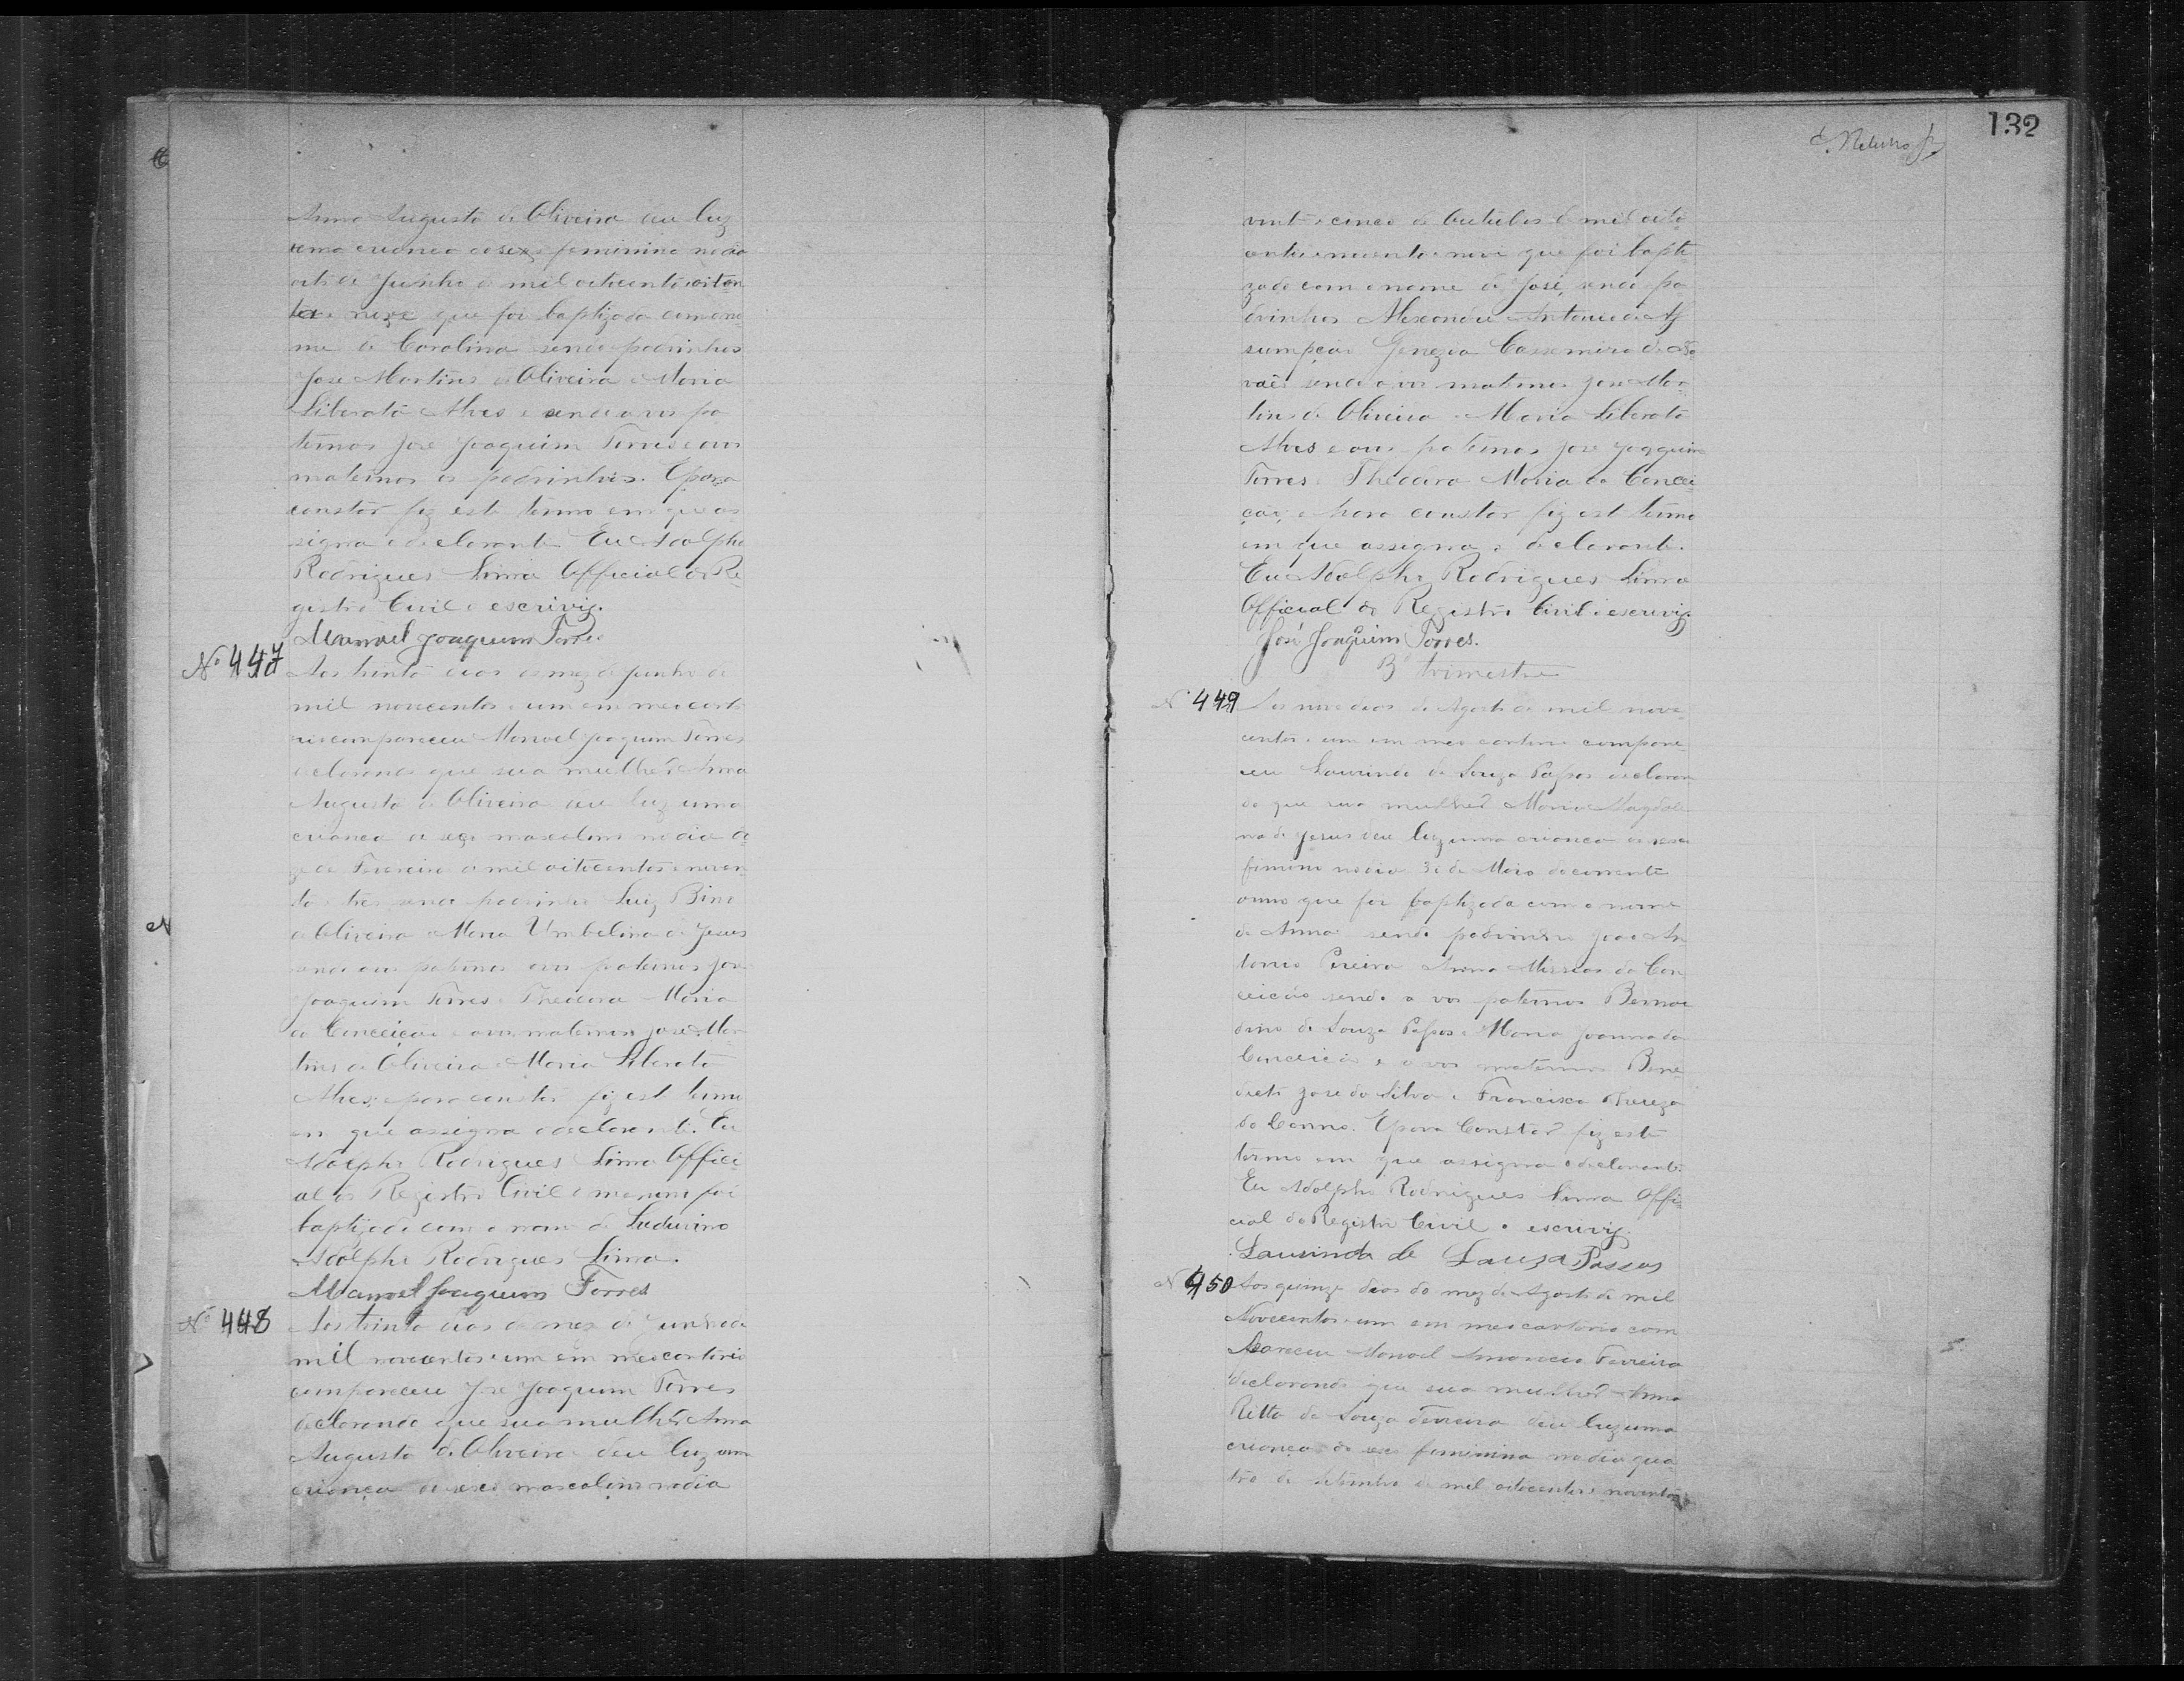 Anna Augusta de Oliveira deu luz
uma criança do sexo feminino no dia
oito de Junho de mil oitocentos oiten
ta e nove que foi baptizada com o no
me de Carolina sendo padrinhos
José Martins de Oliveira e Maria
Liberata Alves e sendo avos pa
ternos José Joaquim Torres e avos
maternos os padrinhos. E para
constar fiz este termo em que as
signa o declarante. Eu Adolpho
Rodrigues Lima Official do Re
gistro Civil o escrivi.
Manoel Joaquim Torres
Nº 447
Aos trinta dias do mez de Junho de
mil novecentos e um em meo carto
rio compareceu Manoel Joaquim Torres
declarando que sua mulher Anna
Augusta de Oliveira deu luz uma
criança do sexo masculino no dia do
ze de Fevereiro de mil oitocentos e noven
ta e tres sendo padrinho Luiz Bino
de Oliveira e Maria Umbelina de Jesus
sendo avos paternos avos paternos José
Joaquim Torres e Theodora Maria
da Conceição e avos maternos José Mar
tins de Oliveira e Maria Liberata
Alves e para constar fiz este termo
em que assigna o declarante. Eu
Adolpho Rodrigues Lima Offici
al do Registro Civil o menino foi
baptizado com o nome de
Adolpho Rodrigues Lima.
Manoel Joaquim Torres
Nº 448
Aos trinta dias do mez de Junho de
mil novecentos e um em meo cartorio
compareceu José Joaquim Torres
declarando que sua mulher Anna
Augusta de Oliveira deu luz uma
criança do sexo masculino no dia
132
vinte e cinco de Outubro de mil oito
centos e noventa e nove que foi bapti
zado com o nome de José, sendo pa
drinhos Alexandre Antonio de As
sumpção Genezia Cassemira de No
vaes sendo avos maternos José Mar
tins de Oliveira e Maria Liberata
Alves e avos paternos José Joaquim
Torres e Theodora Maria da Concei
ção, e para constar fiz este termo
em que assigna o declarante.
Eu Adolpho Rodrigues Lima
Official do Registro Civil o escrivi
José Joaquim Torres.
3º trimestre
Nº 449
Aos nove dias de Agosto de mil nove
centos e um em meo cartorio compare
ceu Laurindo de Souza Passos declaran
do que sua mulher Maria Magdale
na de Jesus deu luz uma criança do sexo
feminino no dia 30 de Maio do corrente
anno que foi baptizada com o nome
de Anna sendo padrinhos João An
tonio Pereira Anna Messias da Con
ceição sendo avos paternos Bernar
dino de Souza Passos e Maria Joanna da
Conceição e avos maternos Bene
dicto José da Silva e Francisca Thereza
do Carmo. E para Constar fiz este
termo em que assigna o declarante
Eu Adolpho Rodrigues Lima Offi
cial do Registro Civil o escrivi
Laurindo de Sauza Passos
Nº 450
Aos quinze dias do mez de Agosto de mil
Novecentos e um em meo cartorio com
pareceu Manoel Amancio Ferreira
declarando que sua mulher Anna
Ritta de Souza Ferreira deu luz uma
criança do sexo feminino no dia qua
tro de Setembro de mil oitocentos e noventa